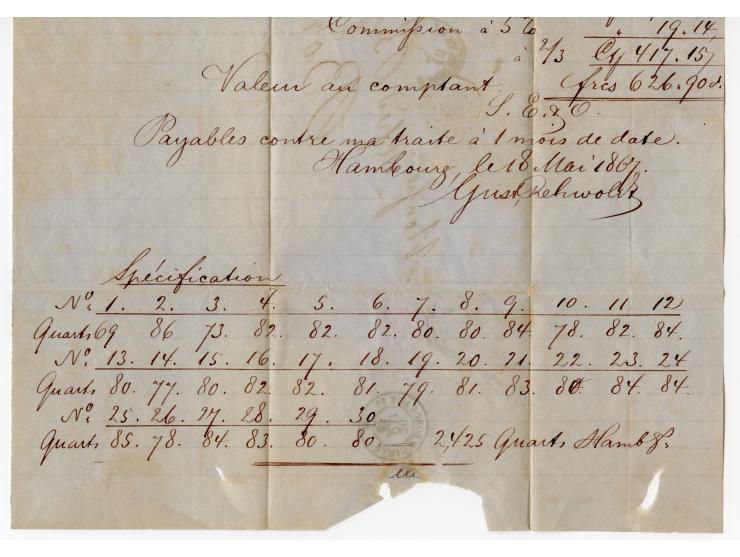 Commission à 5 % " 19.14
à 2/3 C 417.15
Valeur au comptant. frcs 626.90
S. E. & O.
Payables contre ma traite à 1 mois de date.
Hambourg, le 18 Mai 1867.
Gust. Rehwoldt
Spécification
No: 1. 2. 3. 4. 5. 6. 7. 8. 9. 10. 11. 12
Quarts 69 86 73. 82. 82. 82. 80. 80. 84. 78. 82. 84.
No: 13. 14. 15. 16. 17. 18. 19. 20. 21. 22. 23. 24
Quarts 80. 77. 80. 82. 82. 81. 79. 81. 83. 80. 84. 84.
No: 25. 26. 27. 28. 29. 30
Quarts 85. 78. 84. 83. 80. 80. 2,425 Quarts Hambg.